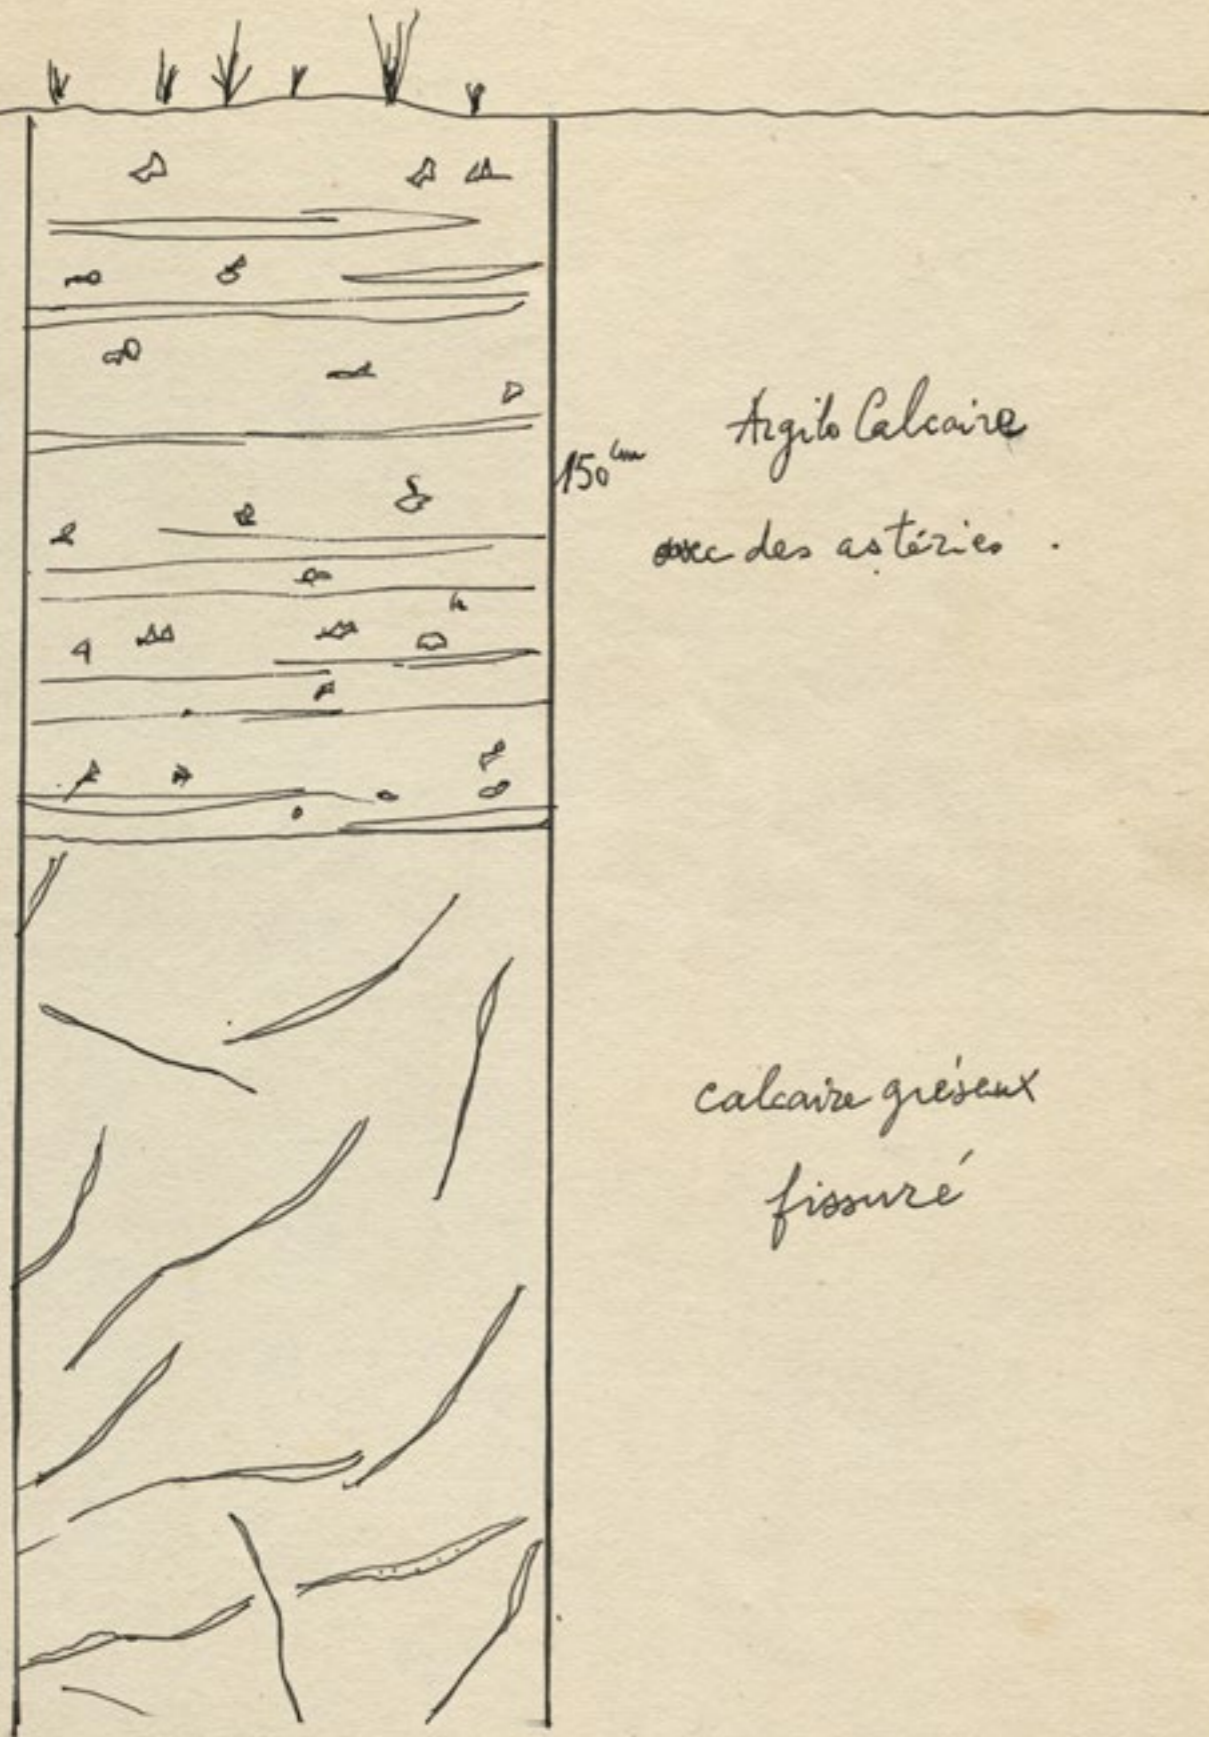 150 cm
Argilo Calcaire
avec des astéries.
calcaire gréseux
fissuré